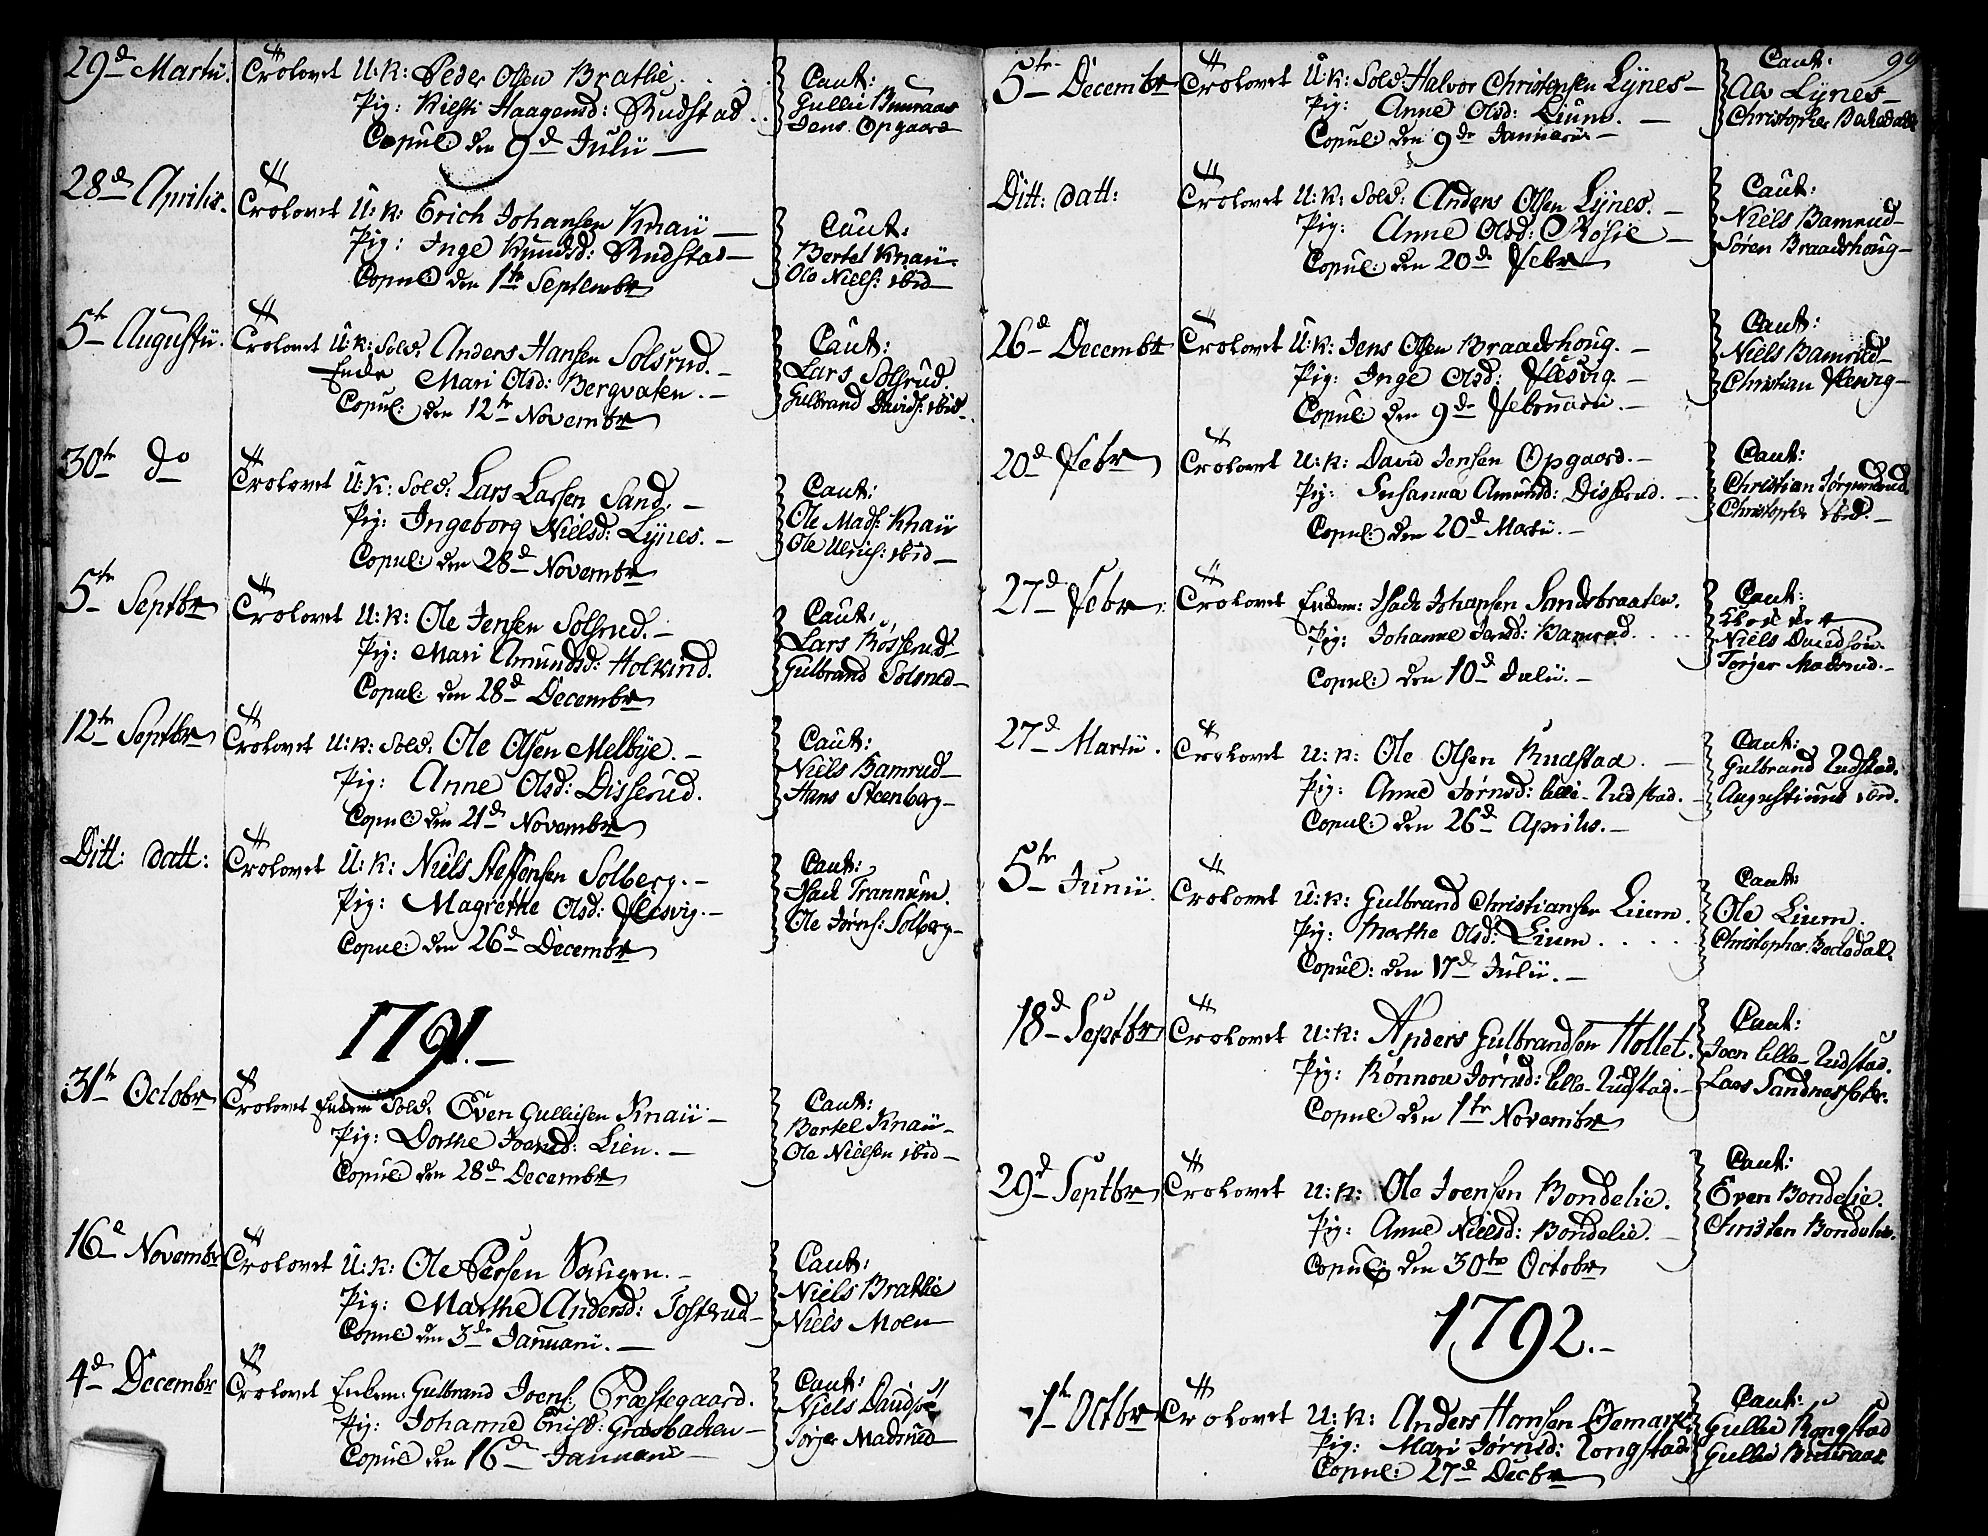 29d Martii. Trolovet U: K: Peder Olsen Brathe.
Pig: Kiesti Haagensd: Rudstad.
Copul: den 9d Julii —
Caut:
Gullie Buuraas
Jens Opgaard
28d Aprilis. Trolovet U: K: Erich Johansen Knaü —
Pig: Inge Knudsd: Rudstad —
Copul: den 1te Septembr
Caut:
Bertel Knaü.
Ole Niels: ibid —
5te Augustii. Trolovet U: K: Sold: Anders Hansen Solsrud. —
Enke Mari Olsd: Bergvaten. —
Copul: den 12te Novembr
Caut:
Lars Solsrud.
Gulbrand Davids: ibid —
30te do Trolovet U: K: Sold: Lars Larsen Sand. —
Pig: Ingeborg Nielsd: Lÿnes. —
Copul: den 28d Novembr
Caut:
Ole Mads: Knaü
Ole Ulrich: ibid —
5te Septbr Trolovet U: K: Ole Jensen Solsrud. —
Pig: Mari Amundsd: Holkind.
Copul: den 28d Decembr
Caut:
Lars Rösserud
Gulbrand Solsrud —
12te Septbr Trolovet U: K: Sold: Ole Olsen Melbÿe. —
Pig: Anne Olsd: Disserud.
Copul: den 21d Novembr
Caut:
Niels Bamrud —
Hans Steenberg —
Ditt: datt: Trolovet U: K: Niels Steffensen Solberg. —
Pig: Magrethe Olsd: Flesvig. —
Copul: den 26d Decembr
Caut:
Isac Trannum.
Ole Jörns: Solberg —
1791. —
31te Octobr Trolovet Enkem: Sold: Even Gulliksen Knaü —
Pig: Dorthe Joensd: Lien. —
Copul: den 28d Decembr
Caut:
Bertel Knaü —
Ole Nielsen ibid —
16d Novembr Trolovet U: K: Ole Persen Haugen. —
Pig: Marthe Andersd: Josterud —
Copul: den 3de Januarii. —
Caut:
Niels Brathe
Niels Moen
4d Decembr Trolovet Enkem: Gulbrand Joens: Præstegaard.
Pig: Johanne Grasbacken —
Copul: den 16de Januarii
Caut:
Niels Davids:
Torjer Madsrud —
99
5te Decembr Trolovet U: K: Sold: Halvor Christensen Lÿnes —
Pig: Anne Olsd: Lium. —
Copul: den 9de Januarii —
Caut:
Alv Lÿnes —
Christopher
Ditt: datt: Trolovet U: K: Sold: Anders Olsen Lÿnes. —
Pig: Anne Olsd: Rosie —
Copul: den 20de Febr
Caut:
Niels Bamrud —
Sören Braadshoug —
26d Decembr Trolovet U: K: Jens Olsen Braadshoug. —
Pig: Inge Olsd: Flesvig. —
Copul: den 9de Februarii. —
Caut:
Niels Bamrud —
Christian Flesvig —
20d Febr Trolovet U: K: David Jensen Opgaard. —
Pig: Susanna Amundsd: Disserud. —
Copul: den 20d Martii. —
Caut:
Christian Jörgensrud.
Christopher ibid. —
27d Febr: Trolovet Enkem: Isach Johansen Sandsbraaten.
Pig: Johanne Jensd: Bamrud.
Copul: den 10d Julii. —
Caut:
Niels Davidsön.
Torjer Madsrud. —
27d Martii. Trolovet U: K: Ole Olsen Rudstad. —
Pig: Anne Jörnsd: lille-Rudstad. —
Copul: den 26d Aprilis. —
Caut:
Gulbrand Rudstad.
Augustinus ibid.
5te Junii. Trolovet U: K: Gulbrand Christiansen Lium.
Pig: Marthe Olsd: Lium.
Copul: den 17d Julii. —
Caut:
Ole Lium.
Christopher
18d Septbr Trolovet U: K: Anders Gulbrandsen Hollet.
Pig: Rönnou Jörnsd: lille-Rudstad. —
Copul: den 1te Novembr
Caut:
Joen lille-Rudstad.
Lars
29d Septbr Trolovet U: K: Ole Joensen Bondelie.
Pig: Anne Nielsd: Bondelie. —
Copul: den 30te Octobr
Caut:
Even Bondelie.
Christen Bondelie.
1792. —
1te Octbr Trolovet U: K: Anders Hansen
Pig: Mari Jörnsd: Rongstad
Copul: den 27d Decbr
Caut:
Gullie Rongstad
Gullie Buuraas